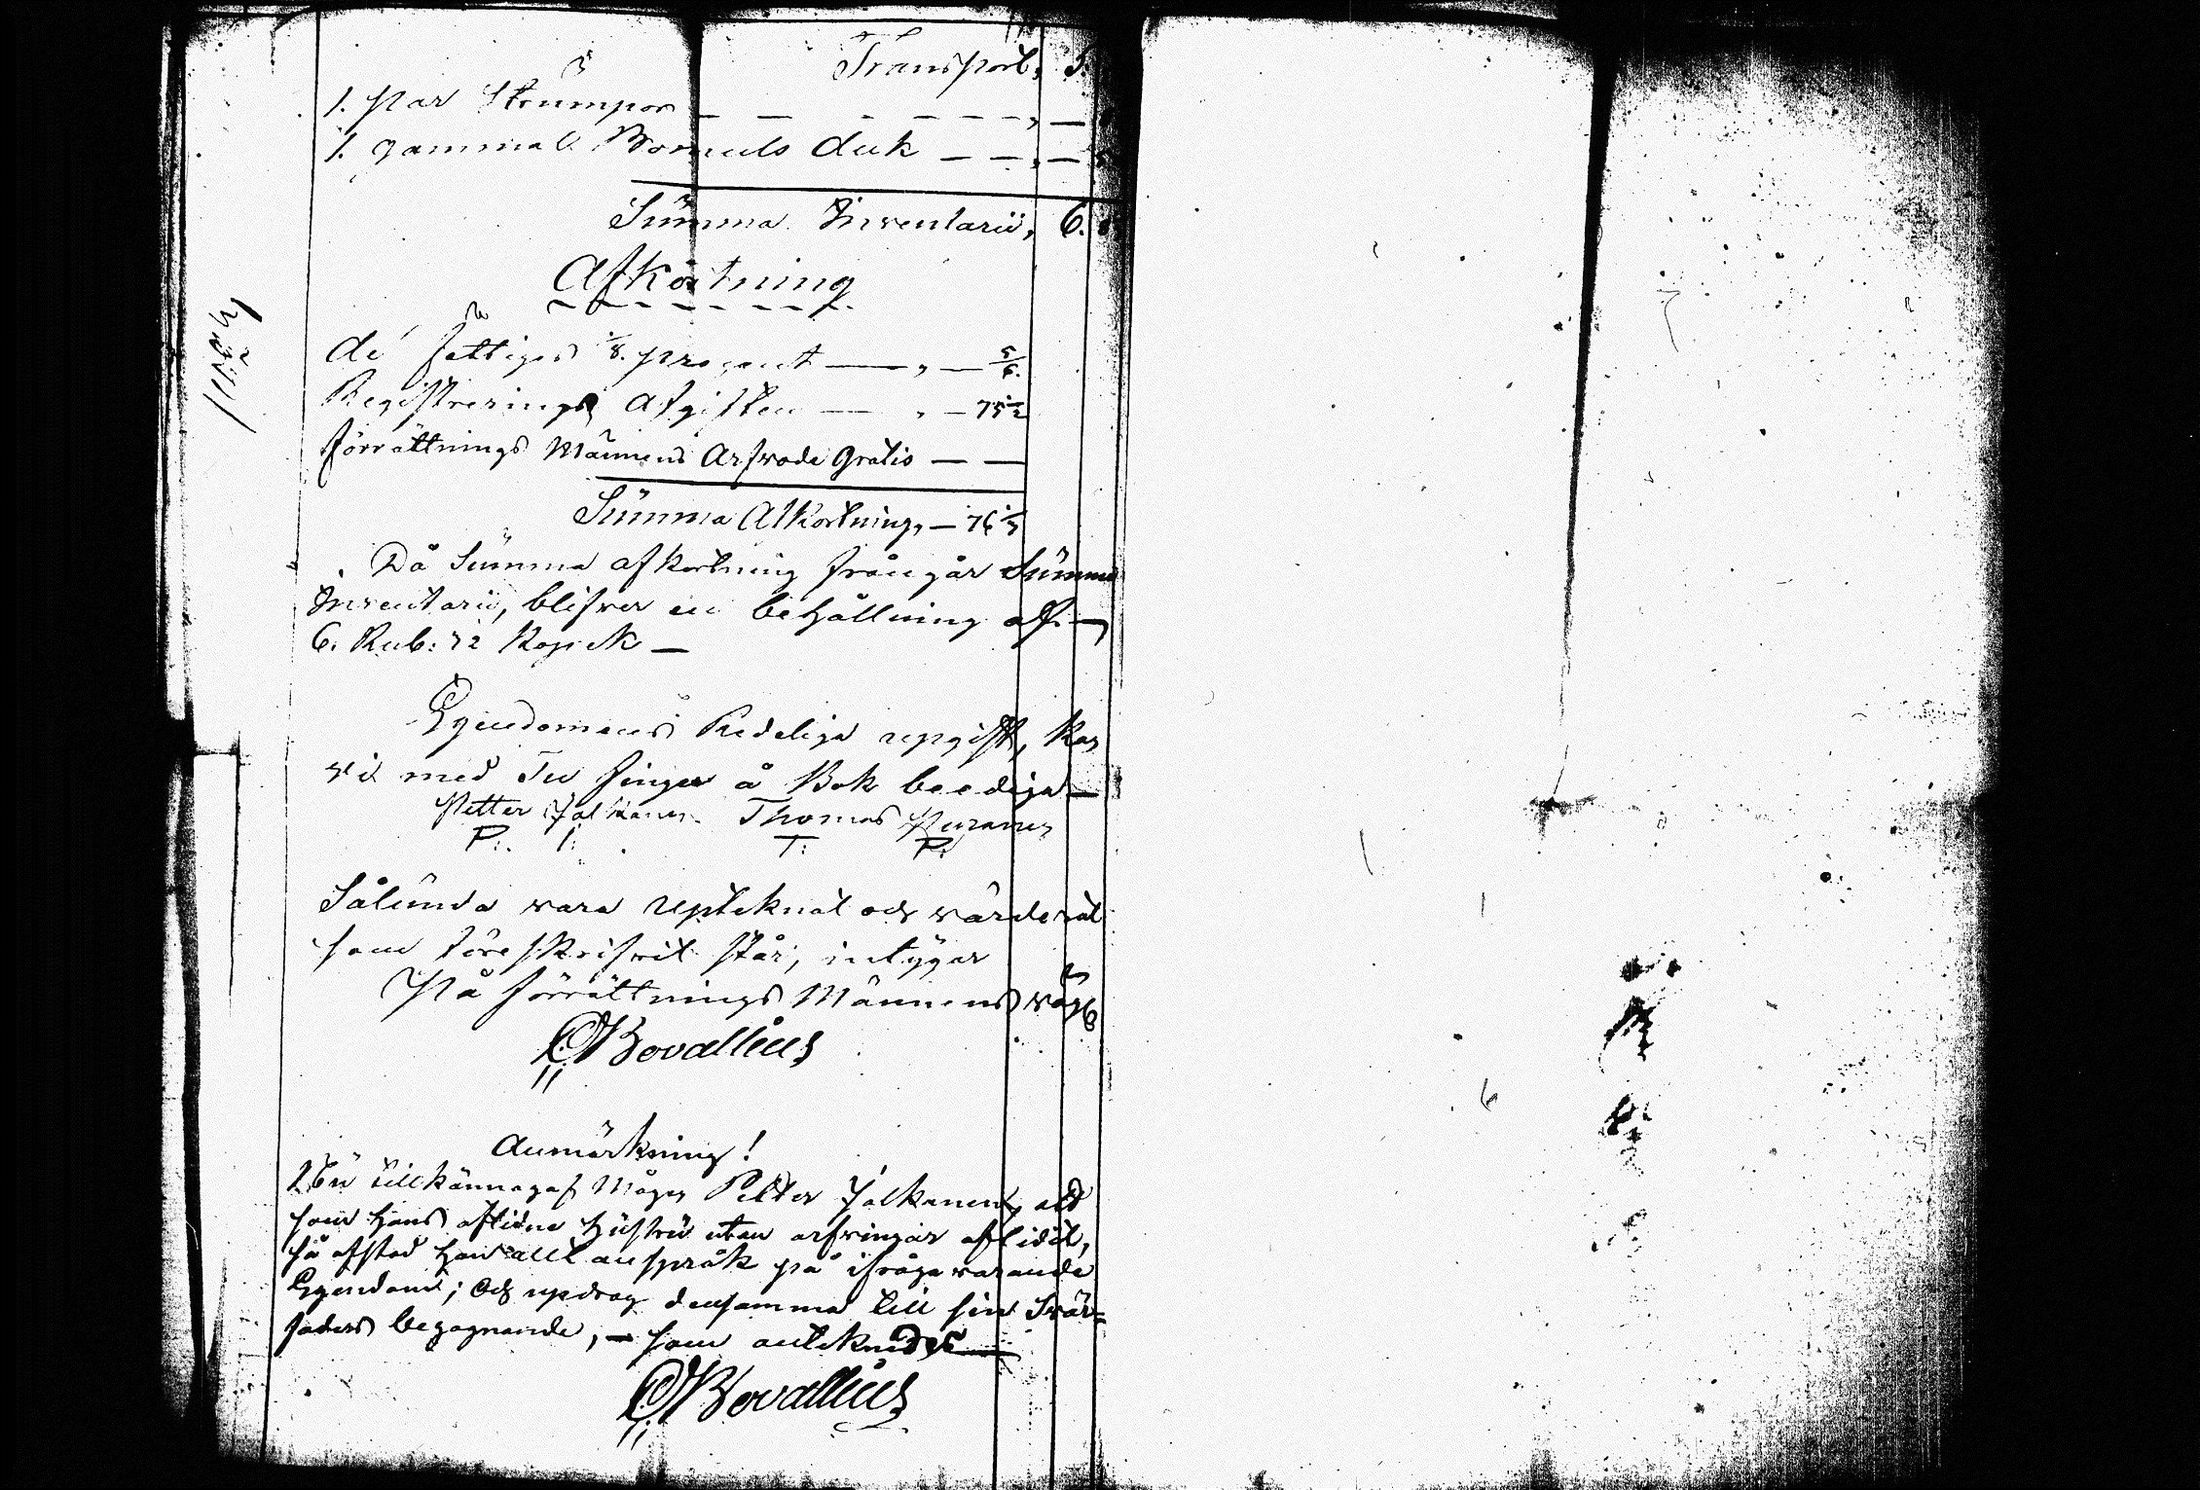 Transport, 5.
1. par Strumpor — — — — — — , —
1. gammal Bomuls duk — — , —
Summa Inventarii, 6.
Afkortning
de fattigas 1/8. procent — , — 5/6.
Registrerings Afgiften — , — 75 1/2
förrättnings Männens Arfvode Gratis — —
Summa Afkortning, — 76 1/3
Då Summa afkortning frångår Summa
Inventarii, blifver en behållning af. —
6. Rub: 72 Kopek —
Egendomens Redeliga upgift, kan
vi med Tu finger å Bok beediga —
Petter Jalkanen. Thomas Puranen
P: I: T: P:
Sålunda vara Upteknat och värderat
som föreskrifvit står; intygar
På förrättnings Männens vägnar
Bovallius
Anmärkning!
Nu tillkännagaf Mågen Petter Jalkanen, att
som Hans aflidne Hustru utan arfvingar aflidit,
så afstod Han allt anspråk på ifråga varande
Egendom; och updrog densamma till sin Svär=
faders begagnande, — som anteknades —
Bovallius